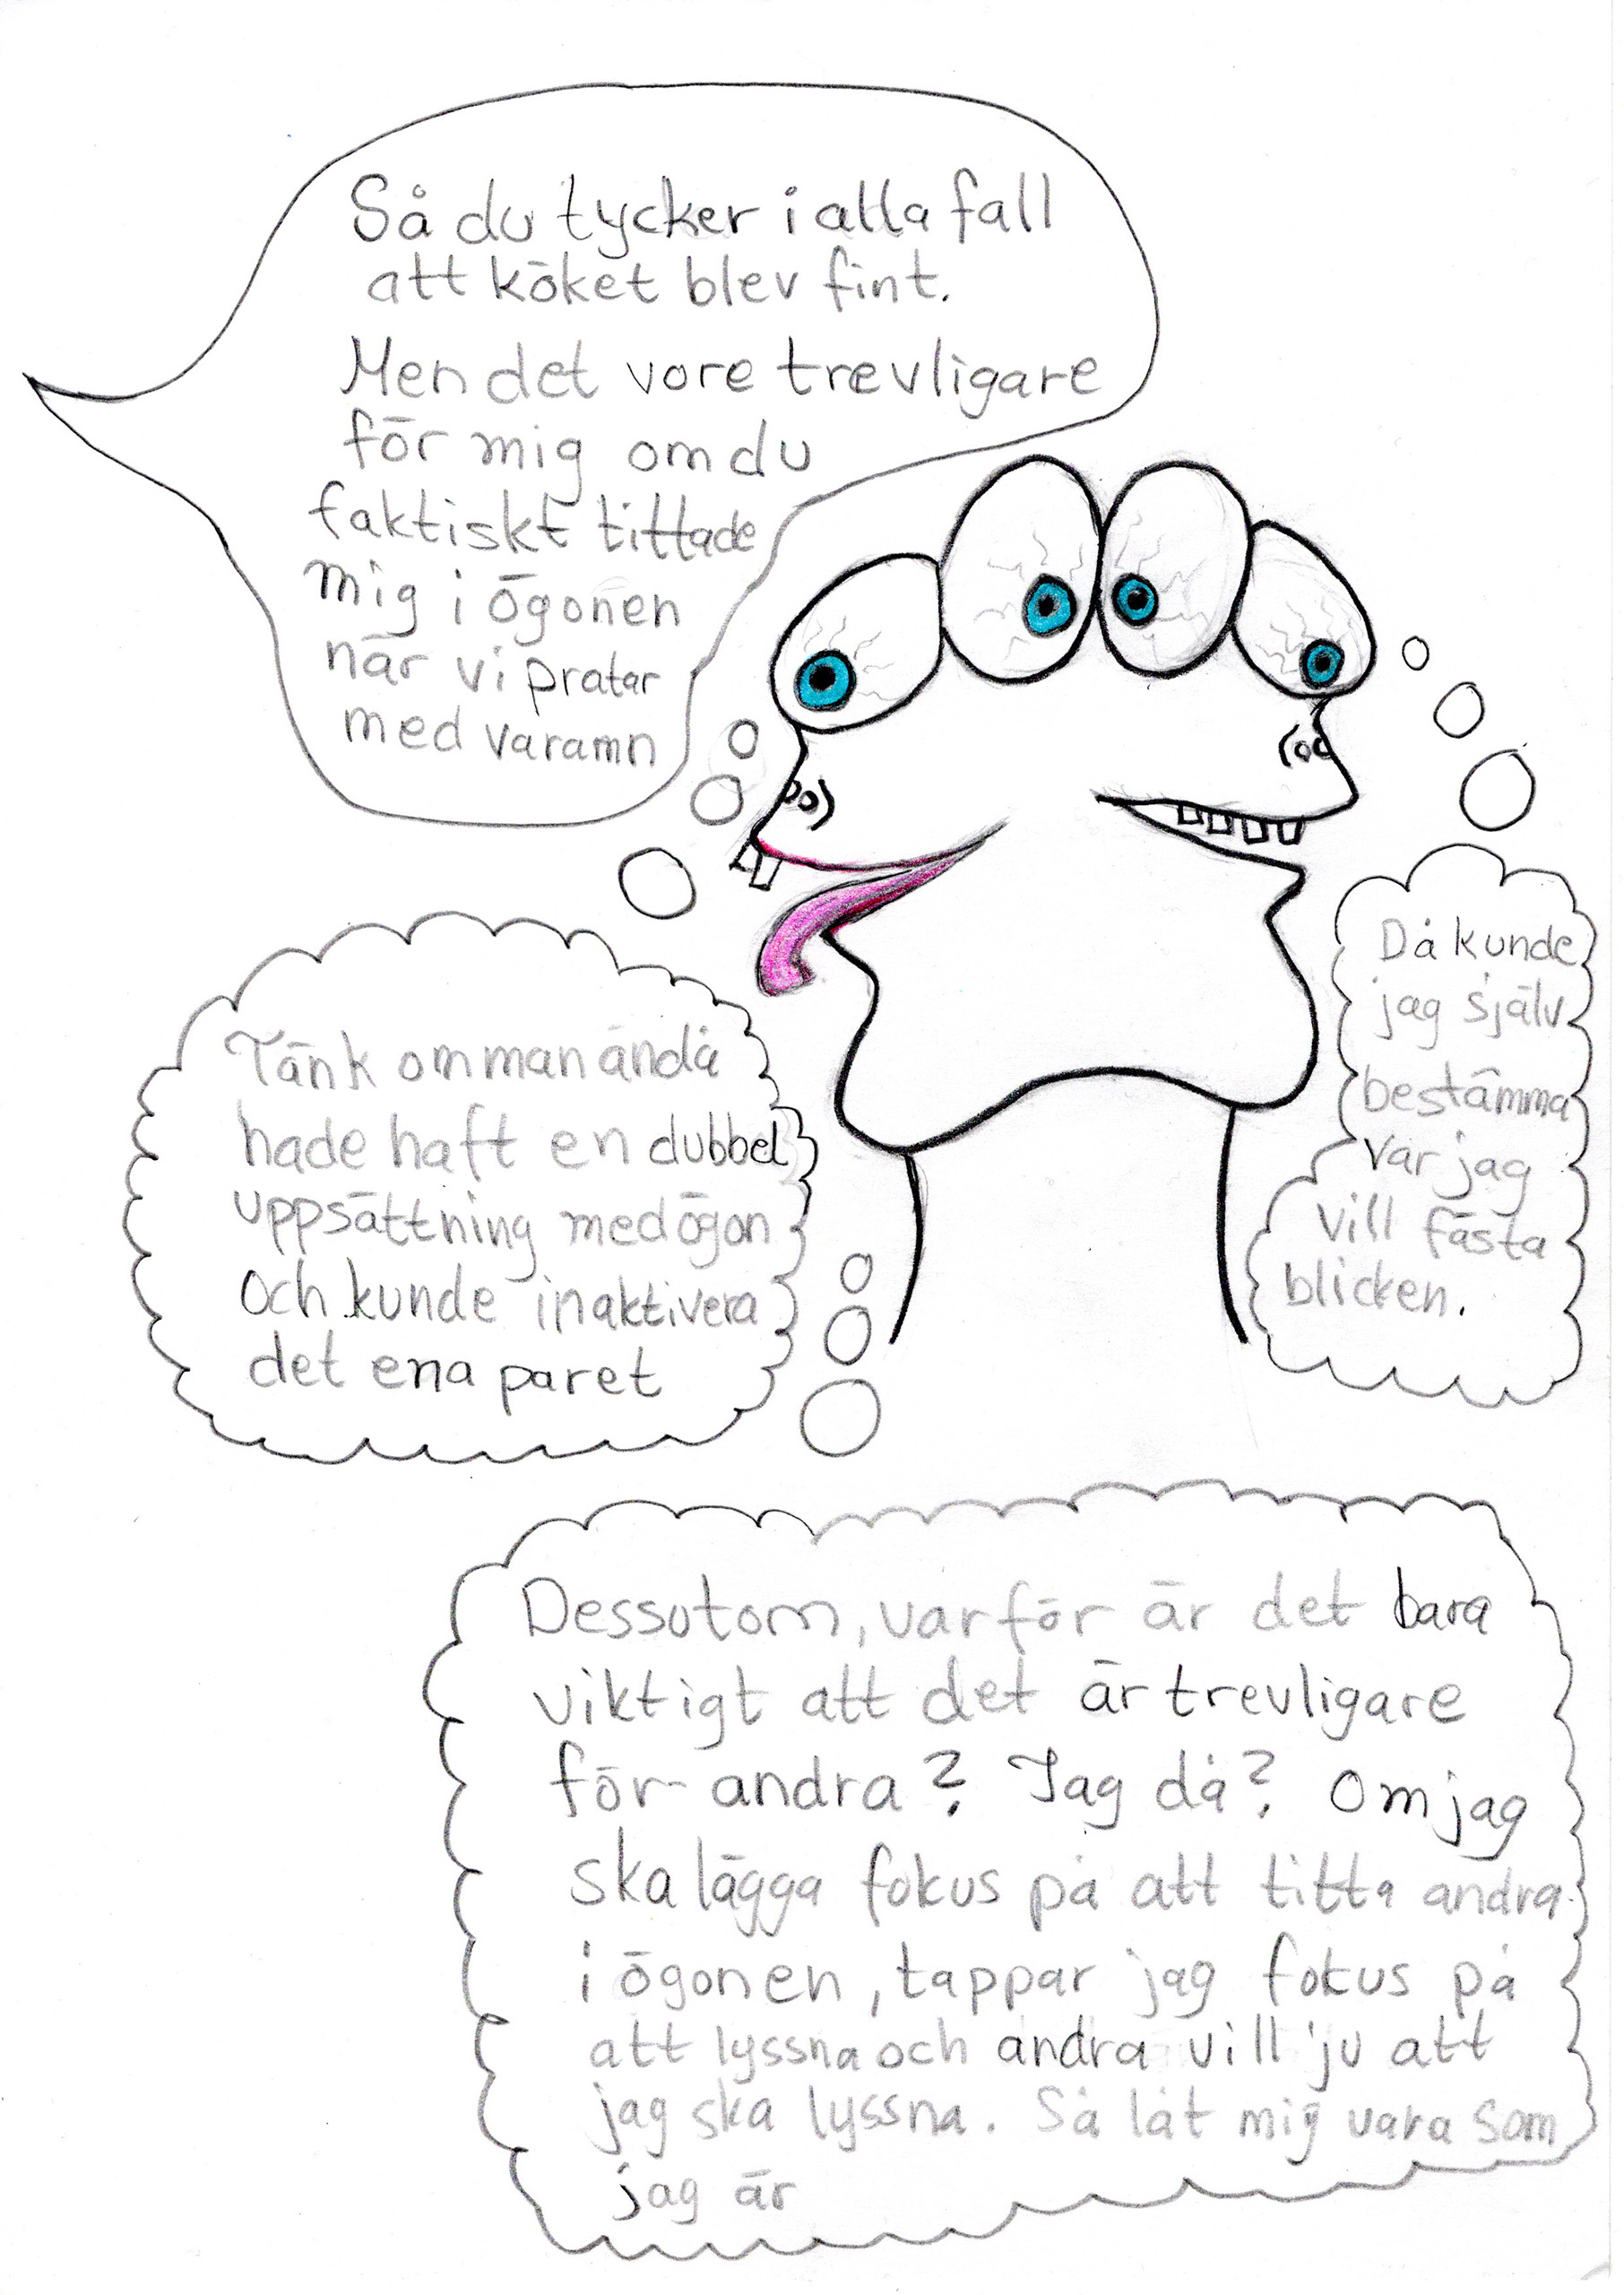 Så du tycker i alla fall
att köket blev fint.
Men det vore trevligare
för mig om du
faktiskt tittade
mig i ögonen
när vi pratar
med varamn
Tänk om man ändå
hade haft en dubbel
uppsättning med ögon
och kunde inaktivera
det ena paret
Då kunde
jag själv
bestämma
var jag
vill fästa
blicken.
Dessutom, varför är det bara
viktigt att det är trevligare
för andra? Jag då? Om jag
ska lägga fokus på att titta andra
i ögonen, tappar jag fokus på
att lyssna och andra vill ju att
jag ska lyssna. Så låt mig vara som
jag är